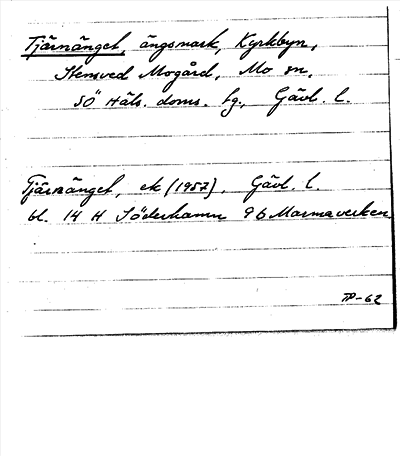 Tjärnänget, ängsmark, Kyrkbyn,
Stensved Mogård, Mo sn,
SÖ Häls. doms. tg., Gävl. l.
Tjärnänget, ek (1957), Gävl. l.
bl. 14 H Söderhamn 9 b Marmaverken
TP-62